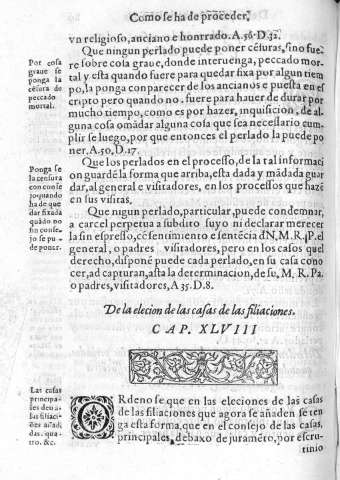 Como se ha de proceder,
vn religioso, anciano e honrrado. A. 56. D. 32.
Que ningun perlado puede poner cẽsuras, sino fue
re sobre cosa graue, donde interuenga, peccado mor-
tal y esta quando fuere para quedar fixa por algun tiem
po, la ponga con parecer de los ancianos e puesta en es
cripto pero quando no, fuere para hauer de durar por
mucho tiempo, como es por hazer, inquisicion, de al
guna cosa o mãdar alguna cosa que sea necessario cum-
plir se luego, por que entonces el perlado la puede po
ner. A. 50, D. 17.
Por cosa
graue se
ponga la
cẽsura de
peccado
mortal.
Que los perlados en el processo, de la tal informaci
on guardẽ la forma que arriba, esta dada y mãdada guar
dar, al general e visitadores, en los processos que hazẽ
en sus visitas,
Que nigun perlado, particular, puede condemnar,
a carcel perpetua a subdito suyo ni declarar merecer
la sin espresso, cõsentimiento e sentẽcia dN, M. R, P. el
general, o padres visitadores, pero en los casos que el
derecho, dispone puede cada perlado, en su casa cono
cer, ad capturan, asta la determinacion, de su, M. R. Pa.
o padres, visitadores, A 35. D. 8.
Ponga se
la censura
con conse
jo quando
ha de que
dar fixada
quãdo no
sin conse-
jo se pu-
de poner.
De la elecion de las casas de las filiaciones.
CAP. XLVIII
Las casas
principa-
les den a
las filiacio
nes añadi
das. qua-
tro. &c.
ORdeno se que en las eleciones de las casas
de las filiaciones que agora se añaden se ten
ga esta forma, que en el consejo de las casas,
principales, debaxo de juramẽto, por escru-
tinio